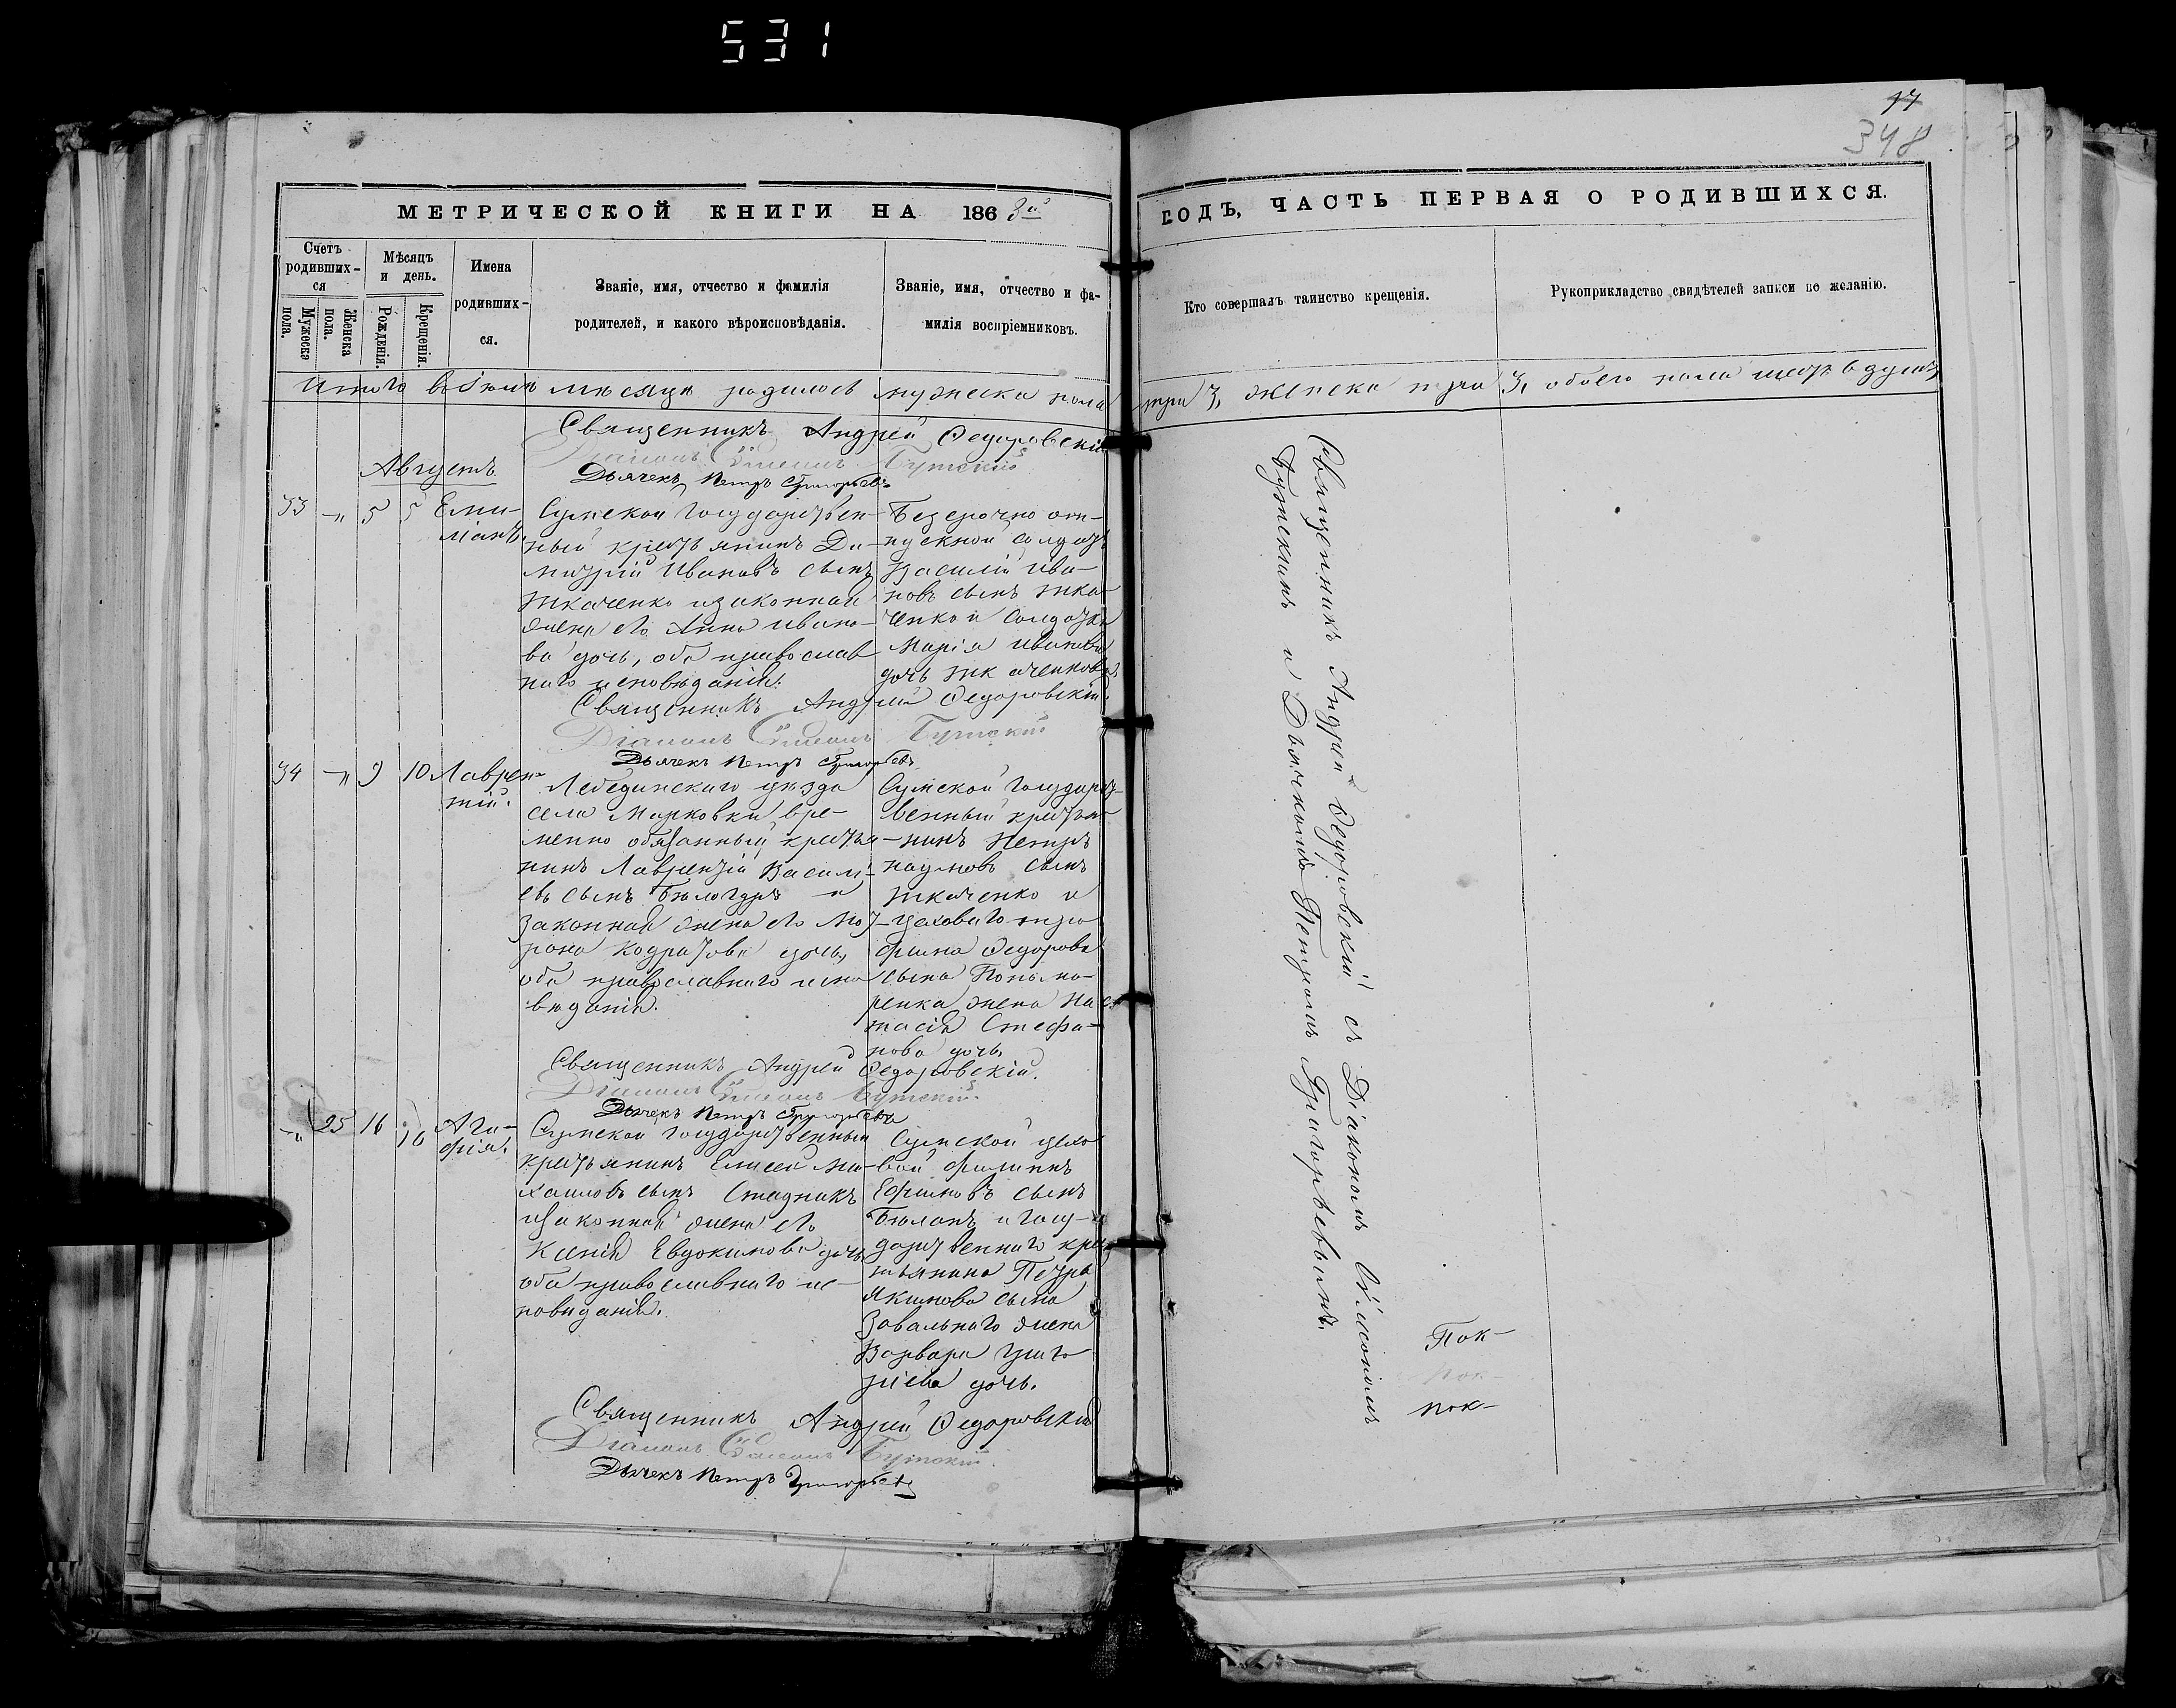 531
17
348
МЕТРИЧЕСКОЙ КНИГИ НА 1863й
ГОДЪ, ЧАСТЬ ПЕРВАЯ О РОДИВШИХСЯ.
Счетъ родивших-ся
Мужеска пола.
Женска пола.
Мѣсяцъ и день.
Рожденія.
Крещенія.
Имена родивших-ся.
Званіе, имя, отчество и фамилія
родителей, и какого вѣроисповѣданія.
Званіе, имя, отчество и фа-
милія воспріемниковъ.
Кто совершалъ таинство крещенія.
Рукоприкладство свидѣтелей записи по желанію.
Итого въ Іюлѣ мѣсяцѣ родилось мужеска пола
три 3, женска три 3, обоего пола шесть 6 душъ
Священникъ Андрей Федоровскій
Діаконъ Сѵмеонъ Бутскій
Дьячекъ Петръ Григорьевъ
Августъ
33 -„ 5 5 Еми-
ліанъ.
Сумской государствен-
ный крестьянинъ Ди-
митрій Ивановъ сынъ
Ткаченко и законная
жена его Анна Ивано-
ва дочь, оба православ
наго исповѣданія.
Безсрочно от-
пускной солдатъ
Василій Ива-
новъ сынъ Тка-
ченко и солдатка
Марія Иванова
дочь Ткаченкова
Священникъ Андрей Федоровскій.
Діаконъ Сѵмеонъ Бутскій
Дьячекъ Петръ Григорьевъ
34 -„ 9 10 Лаврен-
тій.
Лебединскаго уѣзда
села Марковки, вре-
менно обязанный крестья-
нинъ Лаврентій Васильевъ
сынъ и
законная жена его Мот-
рона Кодратова дочь,
оба православнаго испо
вѣданія.
Сумской государст-
венный крестья-
нинъ Петръ
Наумовъ сынъ
Ткаченко и
цеховаго Тро-
фима Федорова
сына Понома-
ренка жена На-
стасія Стефа-
нова дочь.
Священникъ Андрей Федоровскій.
Діаконъ Сѵмеонъ Бутскій.
Дьячекъ Петръ Григорьевъ
-„ 25 16 16 Ага-
фія.
Сумской государственный
крестьянинъ Елисей Ми-
хаиловъ сынъ Стадникъ
и законная жена его
Ксенія Евдокимова дочь
оба православнаго ис-
повѣданія.
Сумской цехо-
вой Филиппъ
Ефимовъ сынъ
и госу-
дарственнаго крес
тьянина Петра
Якимова сына
Завальнаго жена
Варвара Григо-
ріева дочь.
Священникъ Андрей Федоровскій
Діаконъ Сѵмеонъ Бутскій.
Дьячекъ Петръ Григорьевъ
Священникъ Андрей Федоровскій съ Діакономъ Сѵмеономъ
Бутскимъ и Дьячкомъ Петромъ Григорьевымъ.